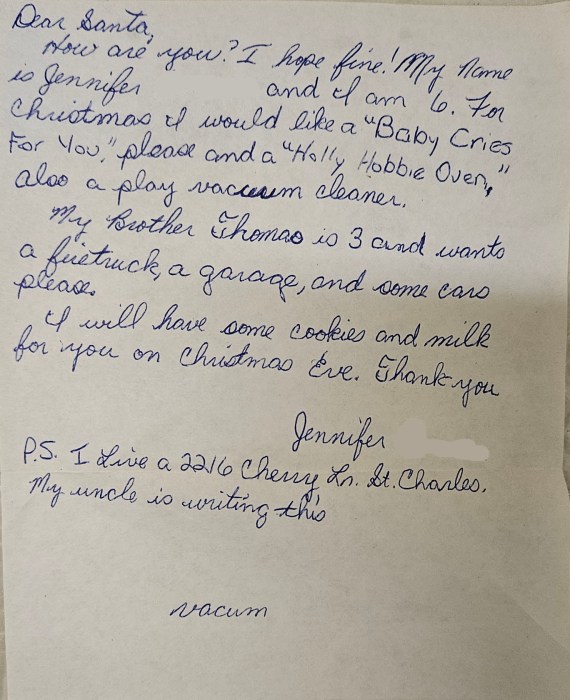 Dear Santa,
How are you? I hope fine! My Name
is Jennifer and I am 6. For
Christmas I would like a "Baby Cries
For You," please and a "Holly Hobbie Oven,"
also a play vacuum cleaner.
My Brother Thomas is 3 and wants
a firetruck, a garage, and some cars
please.
I will have some cookies and milk
for you on Christmas Eve. Thank you
Jennifer
P.S. I Live a 2216 Cherry Ln. St. Charles.
My uncle is writing this
vacum